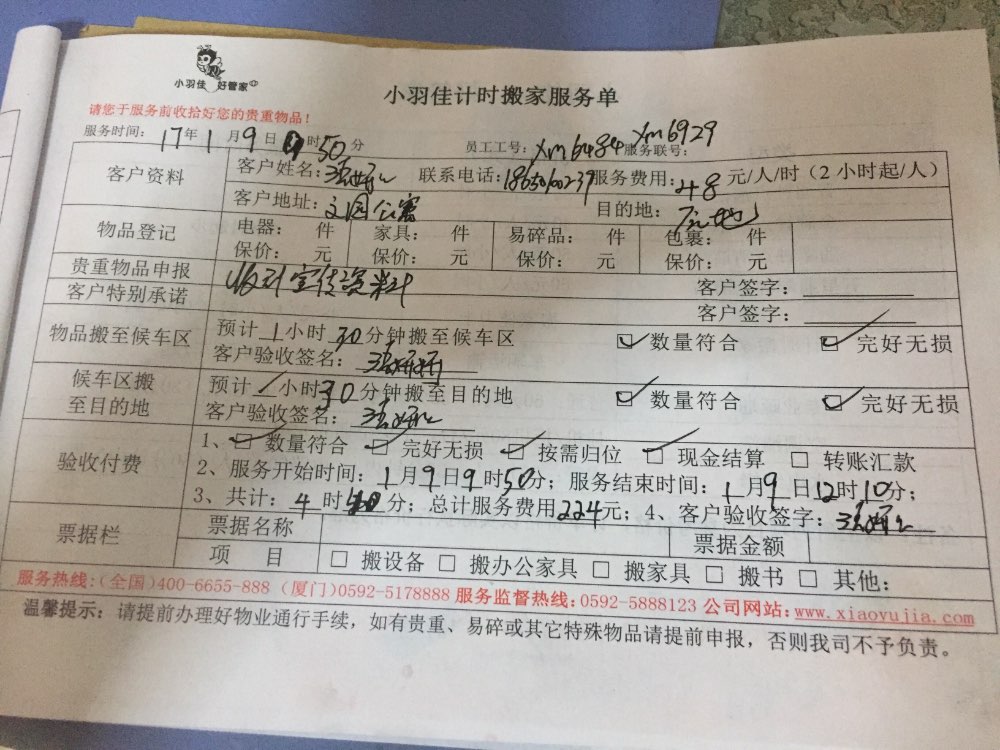 小羽佳 好管家
小羽佳计时搬家服务单
请您于服务前收拾好您的贵重物品!
服务时间: 17年1月9日 时50分 员工工号: Xm6484 Xm6929 服务联号:
客户资料 客户姓名: 联系电话: 18650100239 服务费用: 48 元/人/时(2小时起/人)
客户地址: 文园公寓 目的地: 原地
物品登记 电器: 件 家具: 件 易碎品: 件 包裹: 件
保价: 元 保价: 元 保价: 元 保价: 元
贵重物品申报 收到宣传资料 客户签字:
客户特别承诺 客户签字:
物品搬至候车区 预计1小时30分钟搬至候车区 数量符合 完好无损
客户验收签名:
候车区搬至目的地 预计 小时30分钟搬至目的地 数量符合 完好无损
客户验收签名:
验收付费 1、数量符合 完好无损 按需归位 现金结算 转账汇款
2、服务开始时间: 1月9日9时50分; 服务结束时间: 1月9日12时10分;
3、共计: 4时40分; 总计服务费用224元; 4、客户验收签字:
票据栏 票据名称 票据金额
项 目 搬设备 搬办公家具 搬家具 搬书 其他:
服务热线:(全国)400-6655-888 (厦门)0592-5178888 服务监督热线:0592-5888123 公司网站:www.xiaoyujia.com
温馨提示: 请提前办理好物业通行手续,如有贵重、易碎或其它特殊物品请提前申报,否则我司不予负责。